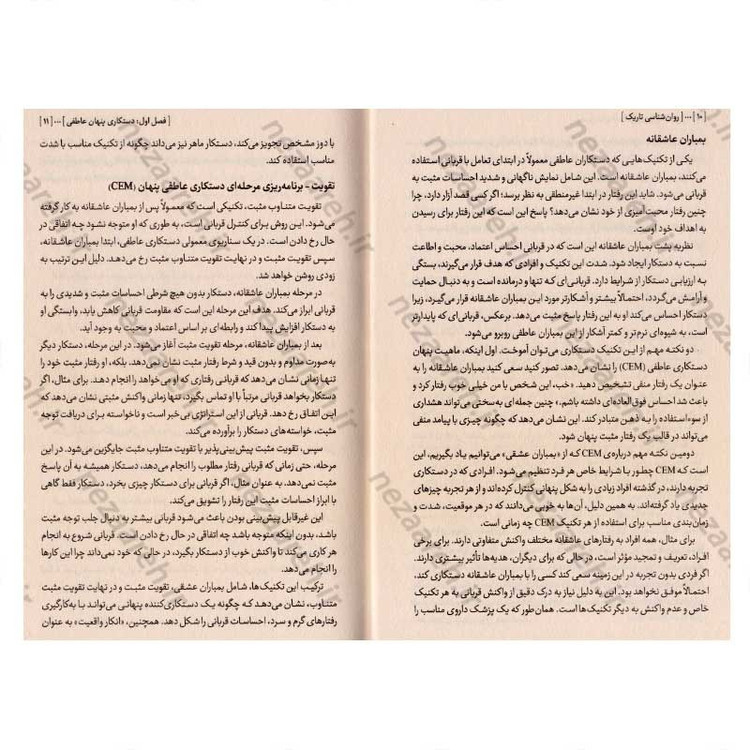 ۱۰ ] ... [ روان‌شناسی تاریک ]
بمباران عاشقانه
یکی از تکنیک‌هایی که دستکاران عاطفی معمولاً در ابتدای تعامل با قربانی استفاده
می‌کنند، بمباران عاشقانه است. این شامل نمایش ناگهانی و شدید احساسات مثبت به
قربانی می‌شود. شاید این رفتار در ابتدا غیرمنطقی به نظر برسد؛ اگر کسی قصد آزار دارد، چرا
چنین رفتار محبت‌آمیزی از خود نشان می‌دهد؟ پاسخ این است که این رفتار برای رسیدن
به اهداف خود اوست.
نظریه پشت بمباران عاشقانه این است که در قربانی احساس اعتماد، محبت و اطاعت
نسبت به دستکار ایجاد شود. شدت این تکنیک و افرادی که هدف قرار می‌گیرند، بستگی
به ارزیابی دستکار از شرایط دارد. قربانی‌ای که تنها و درمانده است و به دنبال حمایت
و آرامش می‌گردد، احتمالاً بیشتر و آشکارتر مورد این بمباران عاشقانه قرار می‌گیرد، زیرا
دستکار احساس می‌کند او به این رفتار پاسخ مثبت می‌دهد. برعکس، قربانی‌ای که پایدارتر
است، به شیوه‌ای نرم‌تر و کمتر آشکار از این بمباران عاطفی روبرو می‌شود.
دو نکته مهم از این تکنیک دستکاری می‌توان آموخت. اول اینکه، ماهیت پنهان
دستکاری عاطفی (CEM) را نشان می‌دهد. تصور کنید سعی کنید بمباران عاشقانه را به
عنوان یک رفتار منفی تشخیص دهید. «خب، این شخص با من خیلی خوب رفتار کرد و
باعث شد احساس فوق‌العاده‌ای داشته باشم.» چنین جمله‌ای به‌سختی می‌تواند هشداری
از سوءاستفاده را به ذهن متبادر کند. این نشان می‌دهد که چگونه چیزی با پیامد منفی
می‌تواند در قالب یک رفتار مثبت پنهان شود.
دومین نکته مهم درباره‌ی CEM که از «بمباران عشقی» می‌توانیم یاد بگیریم، این
است که CEM چطور با شرایط خاص هر فرد تنظیم می‌شود. افرادی که در دستکاری
تجربه دارند، در گذشته افراد زیادی را به شکل پنهانی کنترل کرده‌اند و از هر تجربه چیزهای
جدیدی یاد گرفته‌اند. به همین دلیل، آن‌ها به خوبی می‌دانند که در هر موقعیت، شدت و
زمان‌بندی مناسب برای استفاده از هر تکنیک CEM چه زمانی است.
برای مثال، همه افراد به رفتارهای عاشقانه مختلف واکنش متفاوتی دارند. برای برخی
افراد، تعریف و تمجید مؤثر است، در حالی که برای دیگران، هدیه‌ها تأثیر بیشتری دارند.
اگر فردی بدون تجربه در این زمینه سعی کند کسی را با بمباران عاشقانه دستکاری کند،
احتمالاً موفق نخواهد بود. این به دلیل نیاز به درک دقیق از واکنش قربانی به هر تکنیک
خاص و عدم واکنش به دیگر تکنیک‌ها است. همان‌طور که یک پزشک داروی مناسب را
[ فصل اول: دستکاری پنهان عاطفی ] ... [ ۱۱
با دوز مشخص تجویز می‌کند، دستکار ماهر نیز می‌داند چگونه از تکنیک مناسب با شدت
مناسب استفاده کند.
تقویت - برنامه‌ریزی مرحله‌ای دستکاری عاطفی پنهان (CEM)
تقویت متناوب مثبت، تکنیکی است که معمولاً پس از بمباران عاشقانه به کار گرفته
می‌شود. این روش برای کنترل قربانی است، به طوری که او متوجه نشود چه اتفاقی در
حال رخ دادن است. در یک سناریوی معمولی دستکاری عاطفی، ابتدا بمباران عاشقانه،
سپس تقویت مثبت و در نهایت تقویت متناوب مثبت رخ می‌دهد. دلیل این ترتیب به
زودی روشن خواهد شد.
در مرحله بمباران عاشقانه، دستکار بدون هیچ شرطی احساسات مثبت و شدیدی را به
قربانی ابراز می‌کند. هدف این مرحله این است که مقاومت قربانی کاهش یابد، وابستگی او
به دستکار افزایش پیدا کند و رابطه‌ای بر اساس اعتماد و محبت به وجود آید.
بعد از بمباران عاشقانه، مرحله تقویت مثبت آغاز می‌شود. در این مرحله، دستکار دیگر
به‌صورت مداوم و بدون قید و شرط رفتار مثبت نشان نمی‌دهد. بلکه، او رفتار مثبت خود را
تنها زمانی نشان می‌دهد که قربانی رفتاری که او می‌خواهد را انجام دهد. برای مثال، اگر
دستکار بخواهد قربانی مرتباً با او تماس بگیرد، تنها زمانی واکنش مثبتی نشان می‌دهد که
این اتفاق رخ دهد. قربانی از این استراتژی بی‌خبر است و ناخواسته برای دریافت توجه
مثبت، خواسته‌های دستکار را برآورده می‌کند.
سپس، تقویت مثبت پیش‌بینی‌پذیر با تقویت متناوب مثبت جایگزین می‌شود. در این
مرحله، حتی زمانی که قربانی رفتار مطلوب را انجام می‌دهد، دستکار همیشه به آن پاسخ
مثبت نمی‌دهد. به عنوان مثال، اگر قربانی برای دستکار چیزی بخرد، دستکار فقط گاهی
با ابراز احساسات مثبت این رفتار را تشویق می‌کند.
این غیرقابل پیش‌بینی بودن باعث می‌شود قربانی بیشتر به دنبال جلب توجه مثبت
باشد، بدون اینکه متوجه باشد چه اتفاقی در حال رخ دادن است. قربانی شروع به انجام
هر کاری می‌کند تا واکنش خوب از دستکار بگیرد، در حالی که خود نمی‌داند چرا این کارها
را انجام می‌دهد.
ترکیب این تکنیک‌ها، شامل بمباران عشقی، تقویت مثبت و در نهایت تقویت مثبت
متناوب، نشان می‌دهد که چگونه یک دستکاری‌کننده پنهانی می‌تواند با به‌کارگیری
رفتارهای گرم و سرد، احساسات قربانی را شکل دهد. همچنین، «انکار واقعیت» به عنوان
nezaareh.ir